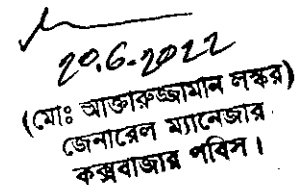 20.6-2022
(মোঃ আক্তারুজ্জামান লস্কর)
জেনারেল ম্যানেজার
কক্সবাজার পবিস।